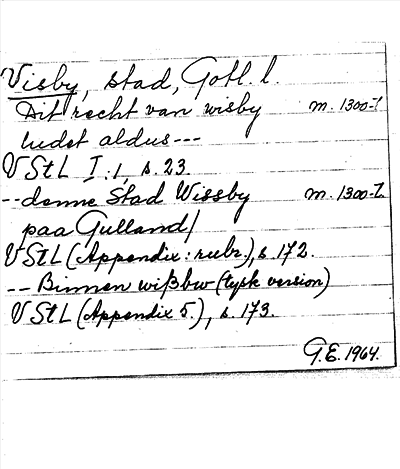 Visby, stad, Gotl. l.
Dit recht van wisby m. 1300-t.
ludet aldus ---
VStL I:1, s. 23.
-- denne Stad Wissby m. 1300-t.
paa Gulland/
VStL (Appendix: rubr.), s. 172.
-- Binnen wißbw (tysk version)
VStL (Appendix 5.), s. 173.
G.E. 1964.